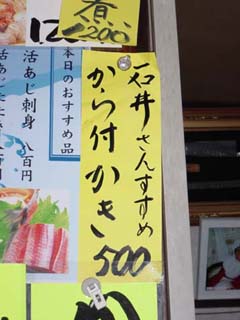 石井さんすすめ
から付かき
500
本日のおすすめ品
活あじ刺身 八百円